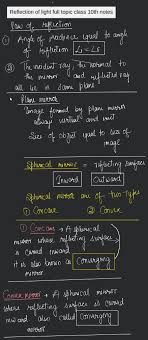 Reflection of light full topic class 10th notes
Law of reflection
① Angle of incidence equal to angle
of reflection Li = Lr
② The incident ray, the normal to
the mirror and reflected ray
all lie in same plane
• Plane mirror
Image formed by plane mirror
always virtual and erect
Size of object equal to size of
image
Spherical mirror → reflecting surface
Inward Outward
Spherical mirror are of two types
① Concave ② Convex
① Concave → A spherical
mirror where reflecting surface
is curved inward
it is also known as Converging
mirror
Convex mirror → A spherical mirror
where reflecting surface is curved
inward also called Converging
mirror